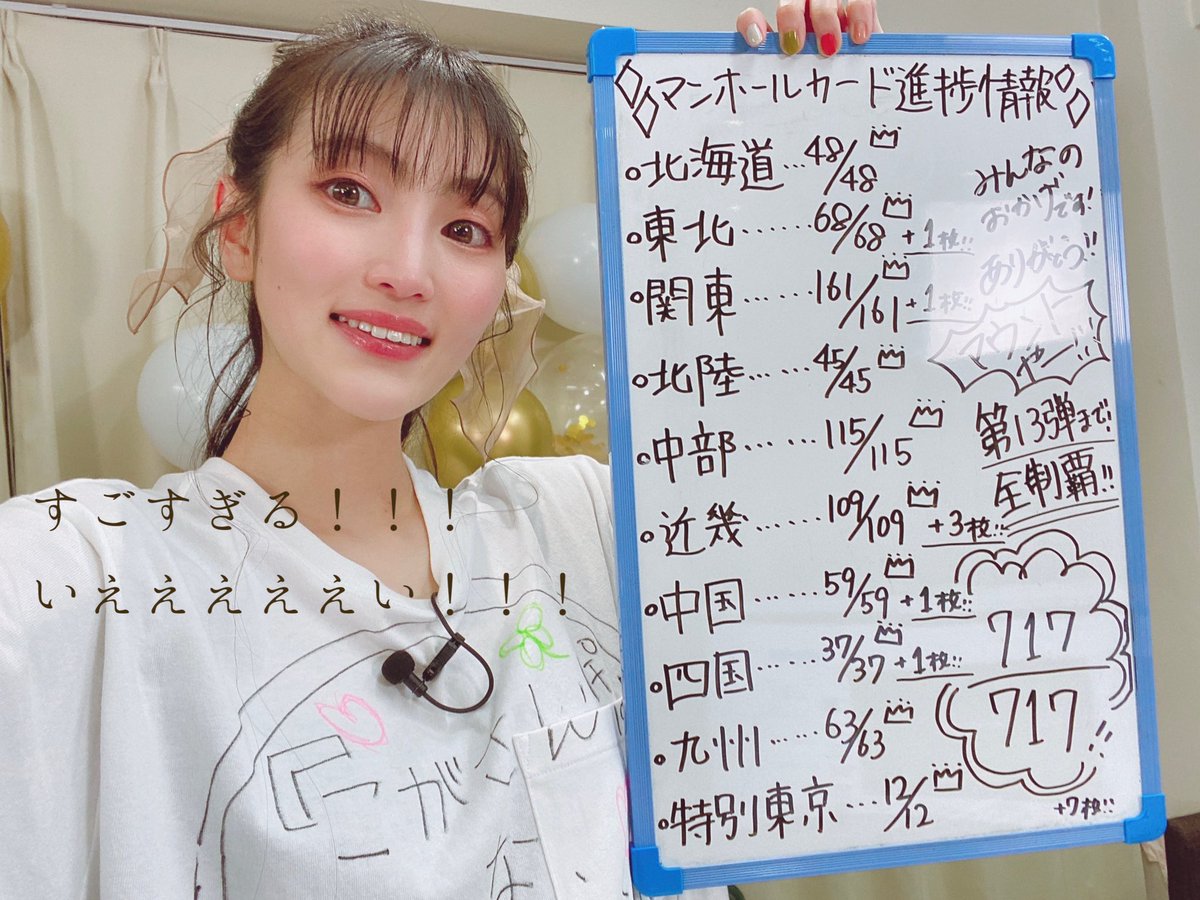 マンホールカード進捗情報
北海道…48/48
東北……68/68 +1枚!!
関東……161/161 +1枚!!
北陸……45/45
中部……115/115
近畿……109/109 +3枚!!
中国……59/59 +1枚!!
四国……37/37 +1枚!!
九州……63/63
特別東京…12/12
みんなの
おかげです!
ありがとう!!
マウント
やー!!
第13弾まで!
全制覇!!
717
717!!
+7枚!!
すごすぎる！！！
いえええええい！！！